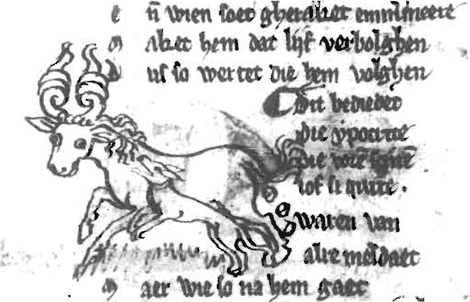 e ñ wien soet gheraket
m aket hem dat lijf verbolghen
D us so wertet die hem volghen
Dit bediedet
die ypocrite
die
lof si quite .
S waren van
alre meldaet
M aer wie so na hem gaet